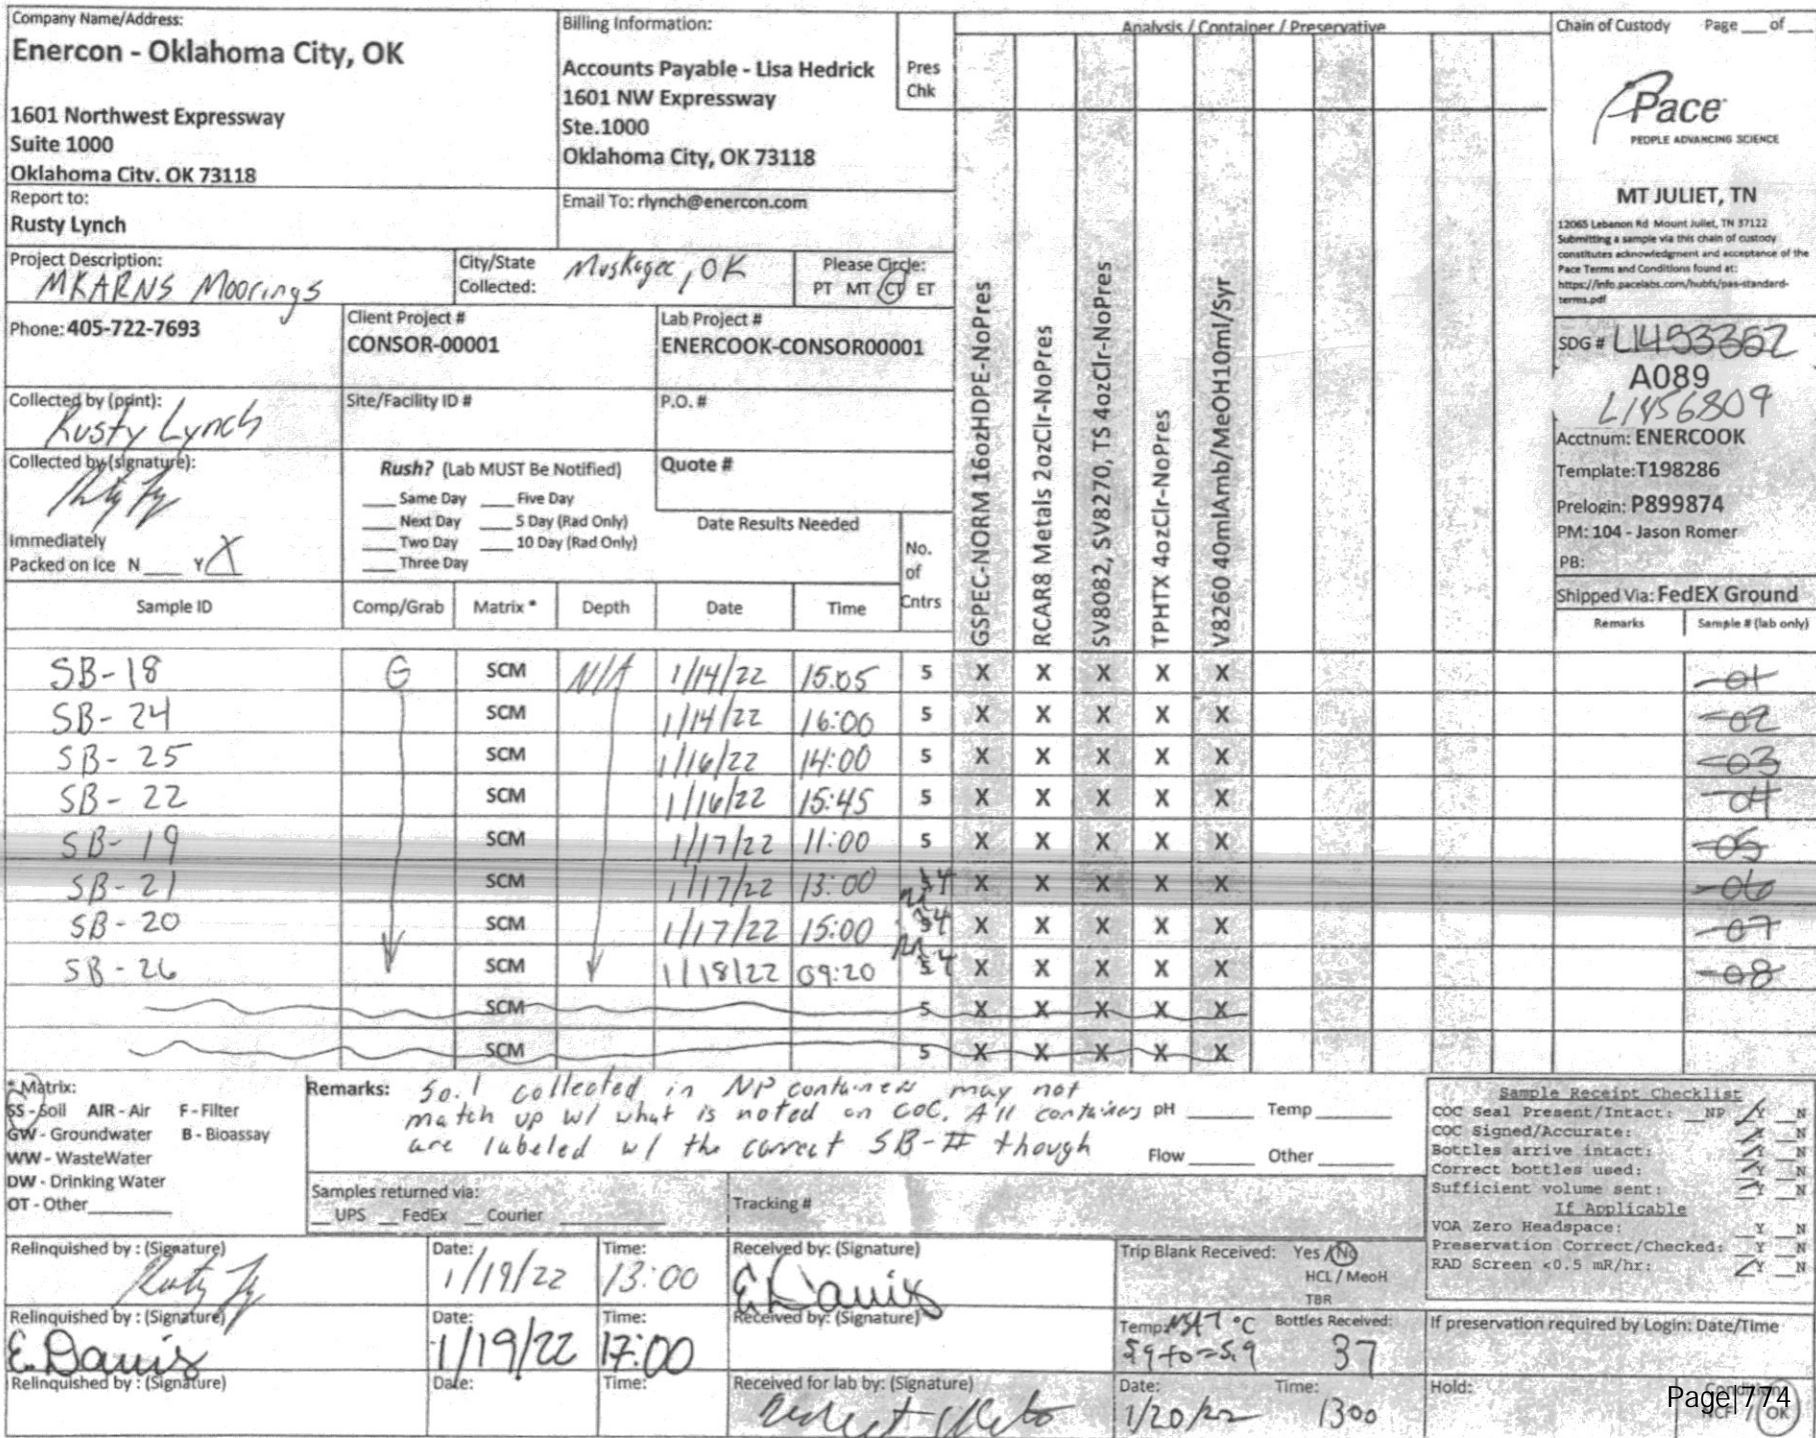 Company Name/Address:
Enercon - Oklahoma City, OK
1601 Northwest Expressway
Suite 1000
Oklahoma City, OK 73118
Billing Information:
Accounts Payable - Lisa Hedrick
1601 NW Expressway
Ste.1000
Oklahoma City, OK 73118
Pres
Chk
Analysis / Container / Preservative
Chain of Custody Page ___ of ___
Pace
PEOPLE ADVANCING SCIENCE
MT JULIET, TN
12065 Lebanon Rd Mount Juliet, TN 37122
Submitting a sample via this chain of custody
constitutes acknowledgment and acceptance of the
Pace Terms and Conditions found at:
https://info.pacelabs.com/hubfs/pas-standard-
terms.pdf
Report to:
Rusty Lynch
Email To: rlynch@enercon.com
Project Description:
MKARNS Moorings
City/State
Collected: Muskogee, OK
Please Circle:
PT MT CT ET
Phone: 405-722-7693
Client Project #
CONSOR-00001
Lab Project #
ENERCOOK-CONSOR00001
Collected by (print):
Rusty Lynch
Site/Facility ID #
P.O. #
Collected by (signature):
Immediately
Packed on Ice N ___ Y X
Rush? (Lab MUST Be Notified)
___ Same Day ___ Five Day
___ Next Day ___ 5 Day (Rad Only)
___ Two Day ___ 10 Day (Rad Only)
___ Three Day
Quote #
Date Results Needed
No.
of
Cntrs
GSPEC-NORM 16ozHDPE-NoPres
RCAR8 Metals 2ozClr-NoPres
SV8082, SV8270, TS 4ozClr-NoPres
TPHTX 4ozClr-NoPres
V8260 40mlAmb/MeOH10ml/Syr
SDG # L1453362
A089
L1456809
Acctnum: ENERCOOK
Template:T198286
Prelogin: P899874
PM: 104 - Jason Romer
PB:
Shipped Via: FedEX Ground
Sample ID Comp/Grab Matrix * Depth Date Time Remarks Sample # (lab only)
SB-18 G SCM N/A 1/14/22 15:05 5 X X X X X -01
SB-24 SCM 1/14/22 16:00 5 X X X X X -02
SB-25 SCM 1/16/22 14:00 5 X X X X X -03
SB-22 SCM 1/16/22 15:45 5 X X X X X -04
SB-19 SCM 1/17/22 11:00 5 X X X X X -05
SB-21 SCM 1/17/22 13:00 5 4 X X X X X -06
SB-20 SCM 1/17/22 15:00 5 4 X X X X X -07
SB-26 SCM 1/18/22 09:20 5 4 X X X X X -08
SCM 5 X X X X X
SCM 5 X X X X X
* Matrix:
SS - Soil AIR - Air F - Filter
GW - Groundwater B - Bioassay
WW - WasteWater
DW - Drinking Water
OT - Other
Remarks: Soil collected in NP containers may not
match up w/ what is noted on COC. All containers
are labeled w/ the correct SB-# though
pH ___ Temp ___
Flow ___ Other ___
Samples returned via:
__ UPS __ FedEx __ Courier
Tracking #
Sample Receipt Checklist
COC Seal Present/Intact: __ NP Y __ N
COC Signed/Accurate: Y __ N
Bottles arrive intact: Y __ N
Correct bottles used: Y __ N
Sufficient volume sent: Y __ N
If Applicable
VOA Zero Headspace: __ Y __ N
Preservation Correct/Checked: __ Y __ N
RAD Screen <0.5 mR/hr: Y __ N
Relinquished by : (Signature)
Date: 1/19/22
Time: 13:00
Received by: (Signature)
E. Davis
Trip Blank Received: Yes / No
HCL / MeoH
TBR
Relinquished by : (Signature)
E. Davis
Date: 1/19/22
Time: 17:00
Received by: (Signature)
Temp: °C
5.9+0=5.9
Bottles Received:
37
If preservation required by Login: Date/Time
Relinquished by : (Signature)
Date:
Time:
Received for lab by: (Signature)
Date: 1/20/22
Time: 1300
Hold:
Condition:
NCF / OK
Page|774